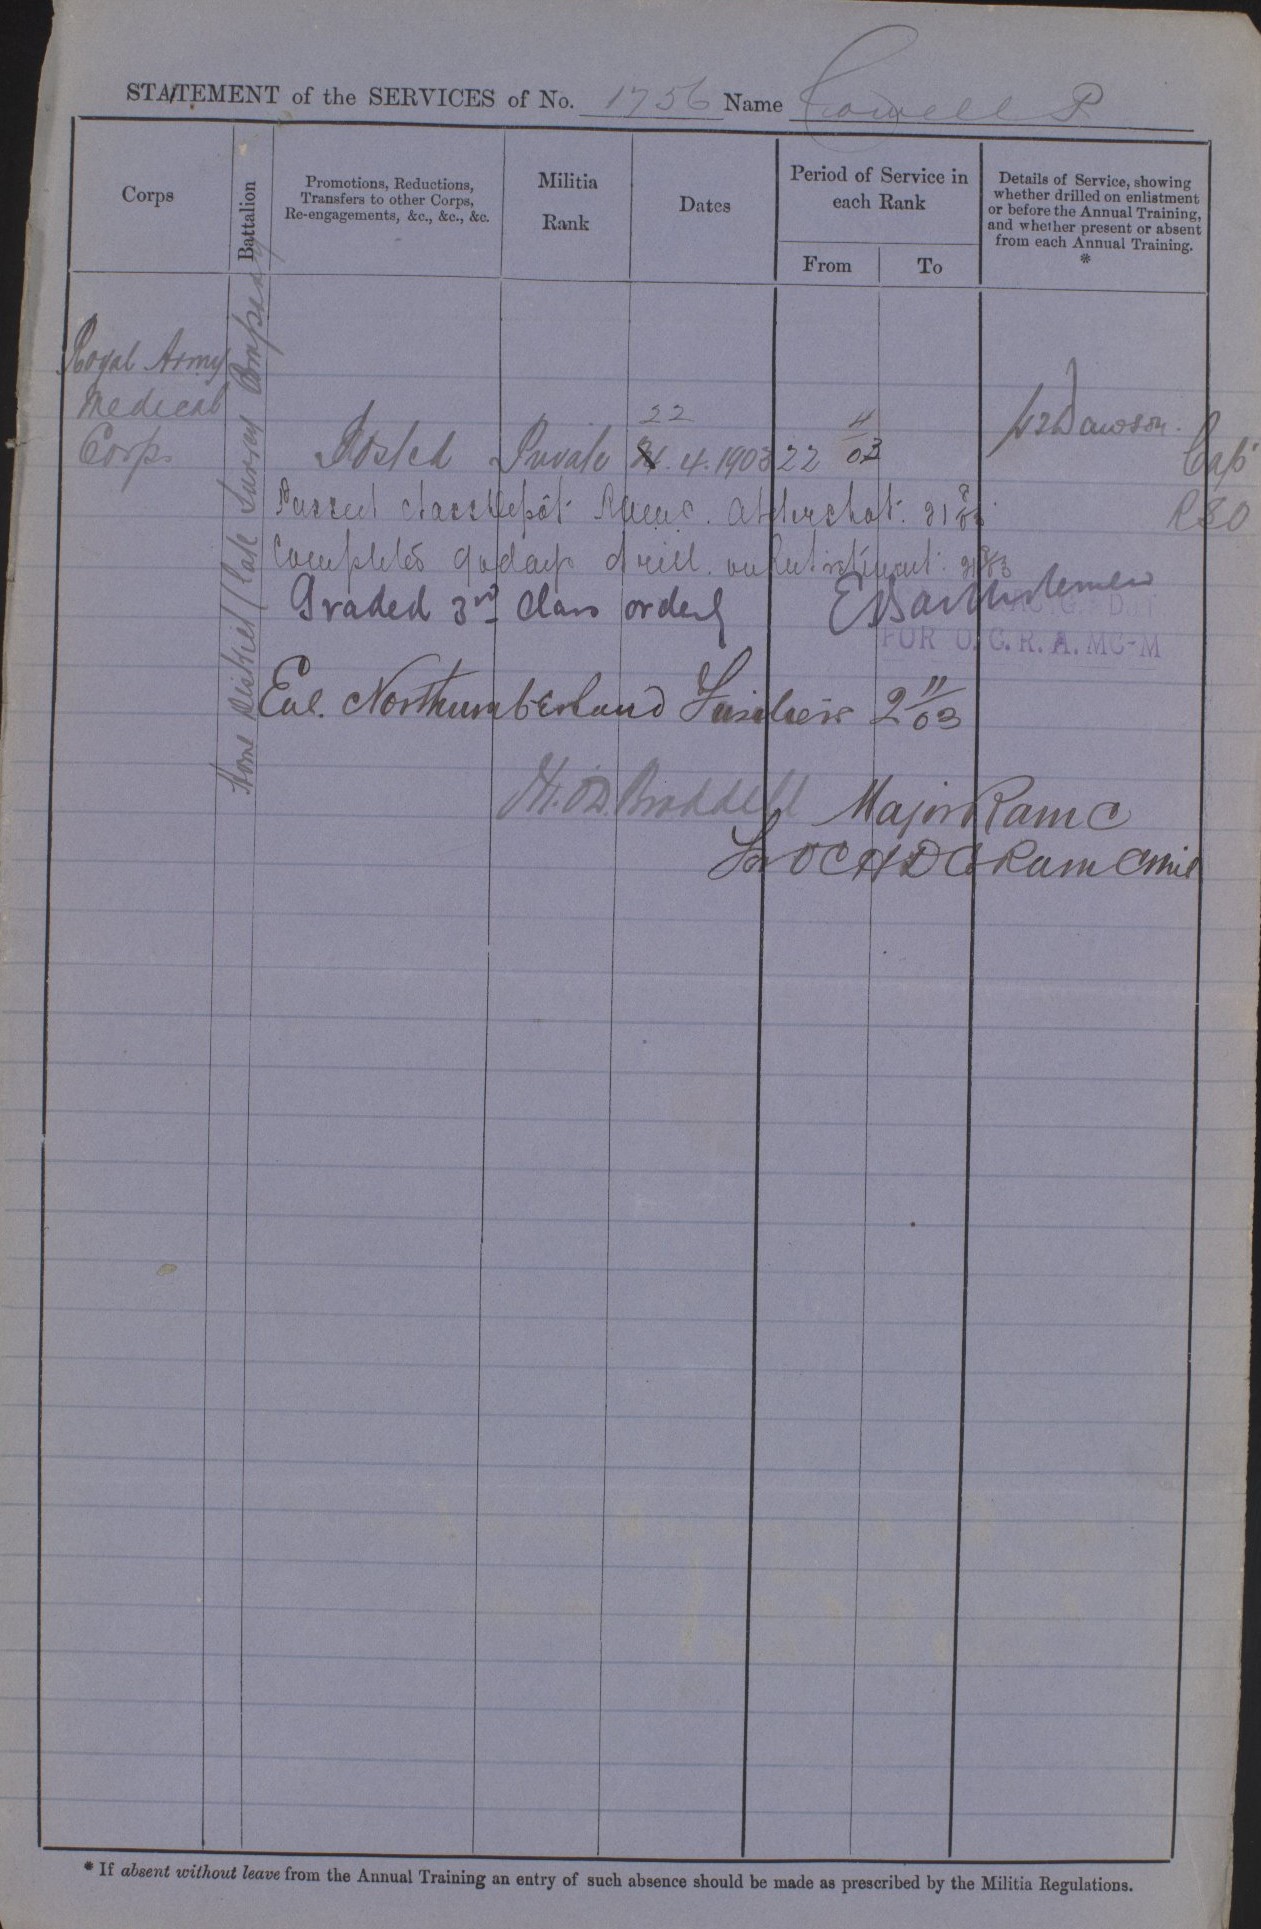 STATEMENT of the SERVICES of No. 1756 Name Cowell P
Corps
Battalion
Promotions, Reductions,
Transfers to other Corps,
Re-engagements, &c., &c., &c.
Militia
Rank
Dates
Period of Service in
each Rank
From
To
Details of Service, showing
whether drilled on enlistment
or before the Annual Training,
and whether present or absent
from each Annual Training.
*
Royal Army
Medical
Corps
Home District (late Surrey Company
22
Posted Private 4. 1903 22 4/03
Dawson.
Capt
RSO
Passed class Depôt R.A.M.C. Aldershot. 21
Completed 90 days drill. on Enlistment.
Graded 3rd Class orderly
FOR O. C. R. A. MC-M
Enl. Northumberland Fusiliers 2 11/03
Braddell Major RAMC
For OC HDC RAMC Mil
* If absent without leave from the Annual Training an entry of such absence should be made as prescribed by the Militia Regulations.